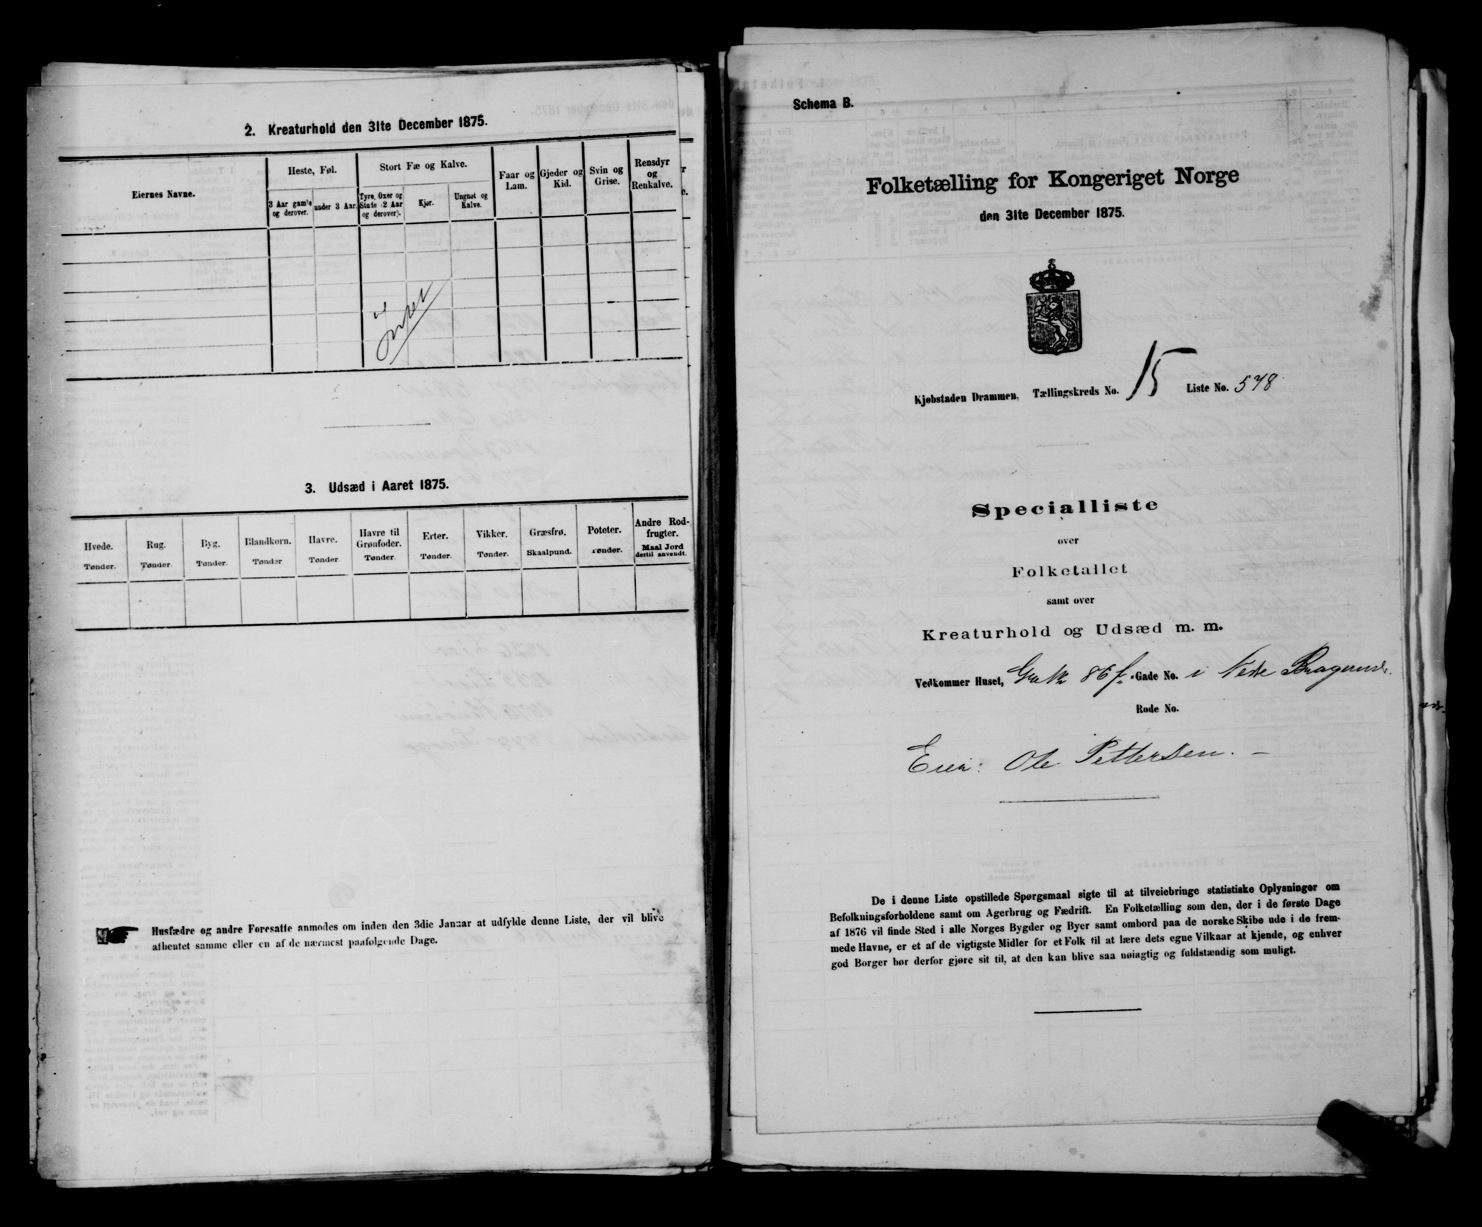 2. Kreaturhold den 31te December 1875.
Eiernes Navne.
Heste, Føl.
3 Aar gamle og derover.
under 3 Aar.
Stort Fæ og Kalve.
Tyre, Oxer og Stude (2 Aar og derover).
Kjør.
Ungnøt og Kalve.
Faar og Lam.
Gjeder og Kid.
Svin og Grise.
Rensdyr og Renkalve.
3. Udsæd i Aaret 1875.
Hvede. Tønder.
Rug. Tønder.
Byg. Tønder.
Blandkorn. Tønder
Havre. Tønder
Havre til Grønfoder. Tønder.
Erter. Tønder.
Vikker. Tønder.
Græsfrø. Skaalpund.
Poteter. Tønder.
Andre Rodfrugter. Maal Jord dertil anvendt.
Husfædre og andre Foresatte anmodes om inden den 3die Januar at udfylde denne Liste, der vil blive
afhentet samme eller en af de nærmest paafølgende Dage.
Schema B.
Folketælling for Kongeriget Norge
den 31te December 1875.
Kjøbstaden Drammen, Tællingskreds No. 15 Liste No. 578
Specialliste
over
Folketallet
samt over
Kreaturhold og Udsæd m. m.
Vedkommer Huset, 86 f. Gade No. i Nedre Bragernes
Rode No.
Eier: Ole Pettersen. –
De i denne Liste opstillede Spørgsmaal sigte til at tilveiebringe statistiske Oplysninger om
Befolkningsforholdene samt om Agerbrug og Fædrift. En Folketælling som den, der i de første Dage
af 1876 vil finde Sted i alle Norges Bygder og Byer samt ombord paa de norske Skibe ude i de frem-
mede Havne, er et af de vigtigste Midler for et Folk til at lære dets egne Vilkaar at kjende, og enhver
god Borger bør derfor gjøre sit til, at den kan blive saa nøiagtig og fuldstændig som muligt.